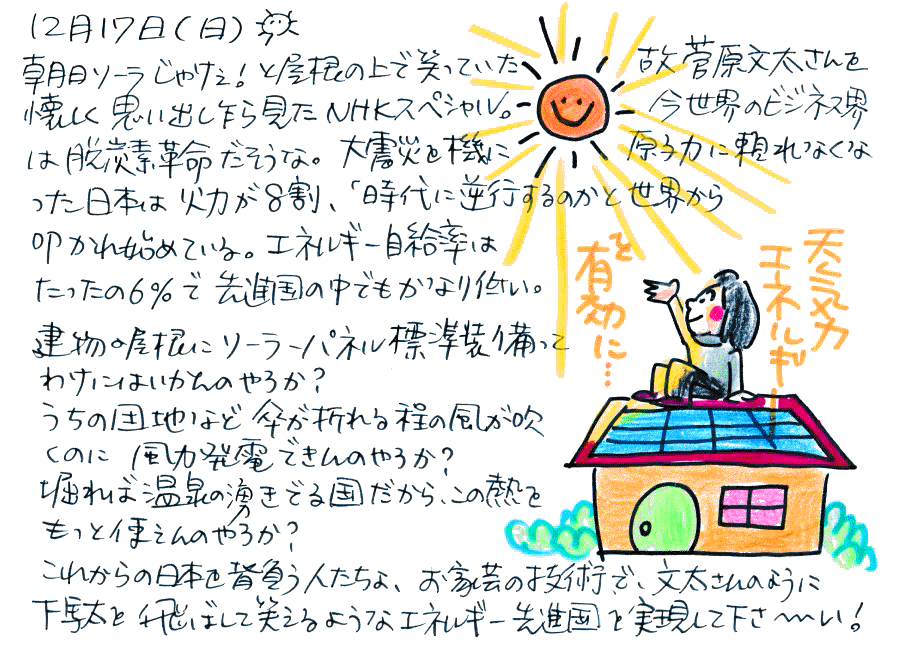 12月17日(日)
朝日ソーラじゃけぇ!と屋根の上で笑っていた 故菅原文太さんを
懐しく思い出し乍ら見たNHKスペシャル。 今世界のビジネス界
は脱炭素革命だそうな。大震災を機に 原子力に頼れなくな
った日本は火力が8割、「時代に逆行するのかと世界から
叩かれ始めている。エネルギー自給率は
たったの6%で先進国の中でもかなり低い。
建物の屋根にソーラーパネル標準装備って
わけにはいかんのやろか?
うちの団地など傘が折れる程の風が吹
くのに風力発電できんのやろか?
堀れば温泉の湧きでる国だから、この熱を
もっと使えんのやろか?
これからの日本を背負う人たちよ、お家芸の技術で、文太さんのように
下駄を飛ばして笑えるようなエネルギー先進国を実現して下さ〜い!
天気力
エネルギー
を
有効に…